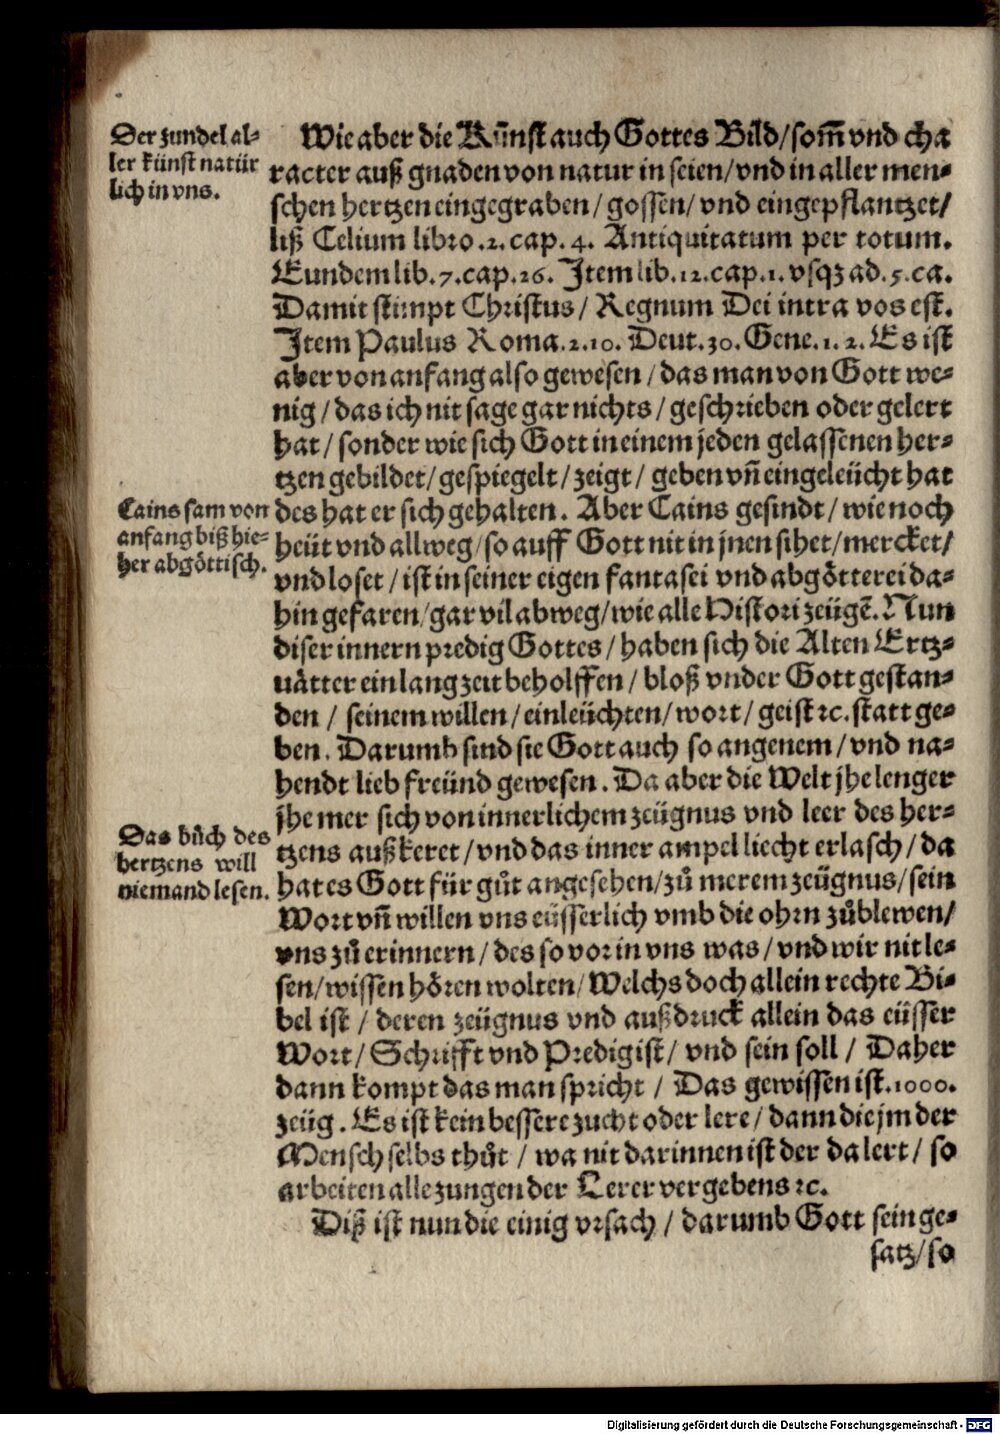 Der zundel al-
ler künst natür
lich in vns.
Wie aber die Künst auch Gottes Bild/som̃ vnd cha
racter auß gnaden von natur in seien/vnd in aller men-
schen hertzen eingegraben/gossen/vnd eingepflantzet/
liß Celium libro.2.cap.4. Antiquitatum per totum.
Eundem lib.7.cap.26. Item lib.12.cap.1.vsqꝫ ad.5.ca.
Damit stimpt Christus/Regnum Dei intra vos est.
Item Paulus Roma.2.10. Deut.30.Gene.1.2. Es ist
aber von anfang also gewesen/das man von Gott we-
nig/das ich nit sage gar nichts/geschrieben oder gelert
hat/sonder wie sich Gott in einem jeden gelassenen her-
tzen gebildet/gespiegelt/zeigt/geben vñ eingeleücht hat
Cains sam von
anfang biß hie-
her abgöttisch.
des hat er sich gehalten. Aber Cains gesindt/wie noch
heüt vnd allweg/so auff Gott nit in jnen sihet/mercket/
vnd loset/ist in seiner eigen fantasei vnd abgötterei da-
hin gefaren/gar vil abweg/wie alle Histori zeügẽ. Nun
diser innern predig Gottes/haben sich die Alten Ertz-
uätter ein lang zeit beholffen/bloß vnder Gott gestan-
den/seinem willen/einleüchten/wort/geist ꝛc. statt ge-
ben. Darumb sind sie Gott auch so angenem/vnd na-
hendt lieb freünd gewesen. Da aber die Welt jhe lenger
jhe mer sich von innerlichem zeügnus vnd leer des her-
Das bůch des
hertzens will
niemand lesen.
tzens außkeret/vnd das inner ampel liecht erlasch/da
hat es Gott für gůt angesehen/zů merem zeügnus/sein
Wort vñ willen vns eüsserlich vmb die ohrn zůblewen/
vns zů erinnern/des so vor in vns was/vnd wir nit le-
sen/wissen hören wolten/Welchs doch allein rechte Bi-
bel ist/deren zeügnus vnd außdruck allein das eüsser
Wort/Schrifft vnd Predig ist/vnd sein soll/Daher
dann kompt das man spricht/Das gewissen ist.1000.
zeüg. Es ist kein bessere zucht oder lere/dann die jm der
Mensch selbs thůt/wa nit darinnen ist der da lert/so
arbeiten alle zungen der Lerer vergebens ꝛc.
Diß ist nun die einig vrsach/darumb Gott sein ge-
satz/so
Digitalisierung gefördert durch die Deutsche Forschungsgemeinschaft - DFG